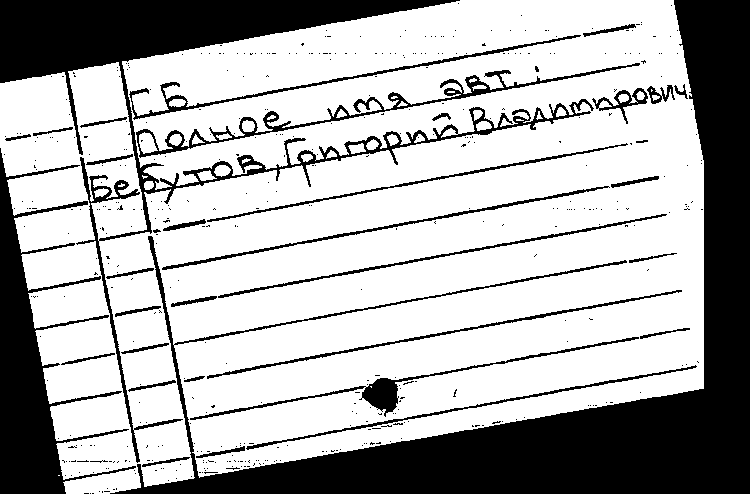 Г.Б.
Полное имя авт.:
Бебутов, Григорий Владимирович.